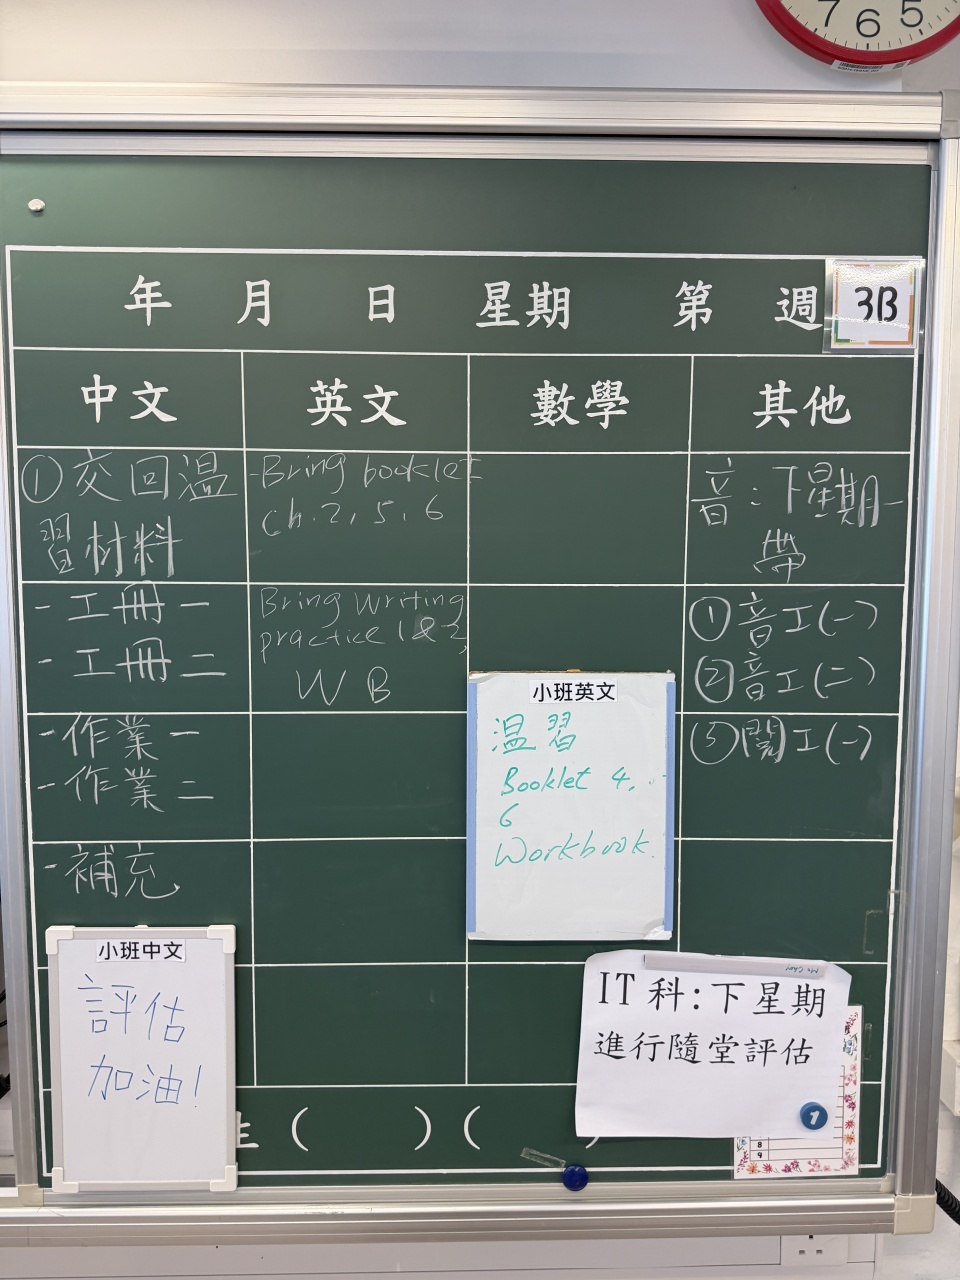 7 6 5
年 月 日 星期 第 週
3B
中文 英文 數學 其他
①交回温
習材料
- 工冊一
- 工冊二
- 作業一
- 作業二
- 補充
小班中文
評估
加油!
-Bring booklet
Ch. 2, 5, 6
Bring Writing
practice 1 & 2,
W B
小班英文
温習
Booklet 4,
6
Workbook
音:下星期一
帶
①音工(一)
②音工(二)
③閱工(一)
Ms Chay
IT 科:下星期
進行隨堂評估
1
8
9
生 ( ) ( )